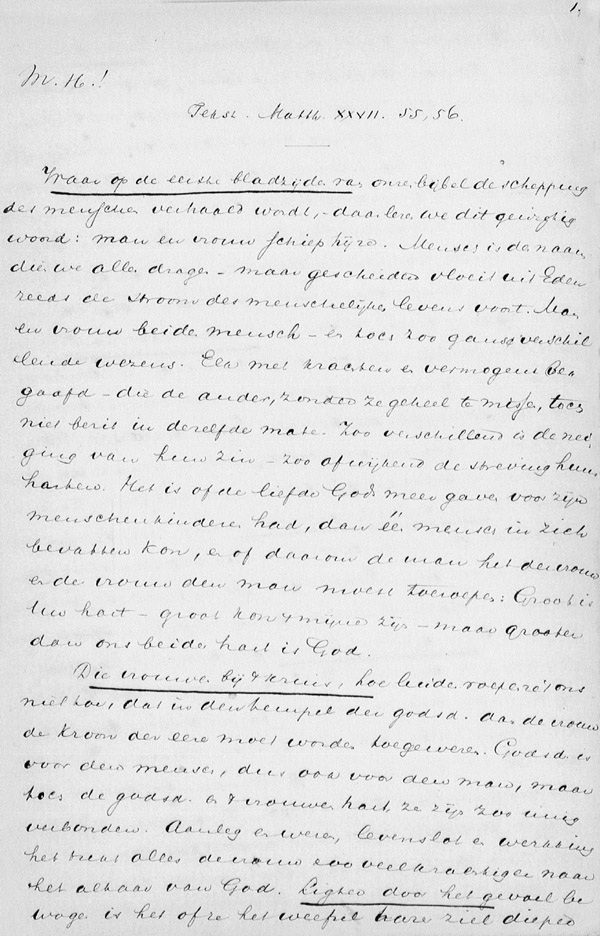 1.
M. H.!
Tekst. Matth. XXVII. 55, 56.
Waar op de eerste bladzijde van onzen bijbel de schepping
des menschen verhaald wordt, - daar lezen we dit gewichtig
woord: man en vrouw schiep hij ze. Mensch is de naam
dien we allen dragen - maar gescheiden vloeit uit Eden
reeds de stroom des menschelijken levens voort. Man
en vrouw beide mensch - en toch zoo gansch verschil
lende wezens. Een met krachten en vermogens be
gaafd - die de ander, zonder ze geheel te missen, toch
niet bezit in dezelfde mate. Zoo verschillend is de nei
ging van hun zin - zoo afwijkend de streving hunner
harten. Het is of de liefde Gods meer gaven voor zijn
menschenkinderen had, dan één mensch in zich
bevatten kon, en of daarom de man het der vrouw
en de vrouw den man moest toeroepen: Groot is
uw hart - groot kon 't mijne zijn - maar grooter
dan ons beider hart is God.
Die vrouwen bij 't kruis, hoe luide roepen ze 't ons
niet toe, dat in den tempel der godsd. aan de vrouw
de kroon der eere moet worden toegewezen. Godsd. is
voor den mensch, dus ook voor den man, maar
toch de godsd. en 't vrouwenhart ze zijn zoo innig
verbonden. Aanleg en wezen, levenslot en werkkring
het trekt alles de vrouw zoo veel krachtiger naar
het altaar van God. Lichter door het gevoel be
wogen is het of ze het weefsel harer ziel dieper